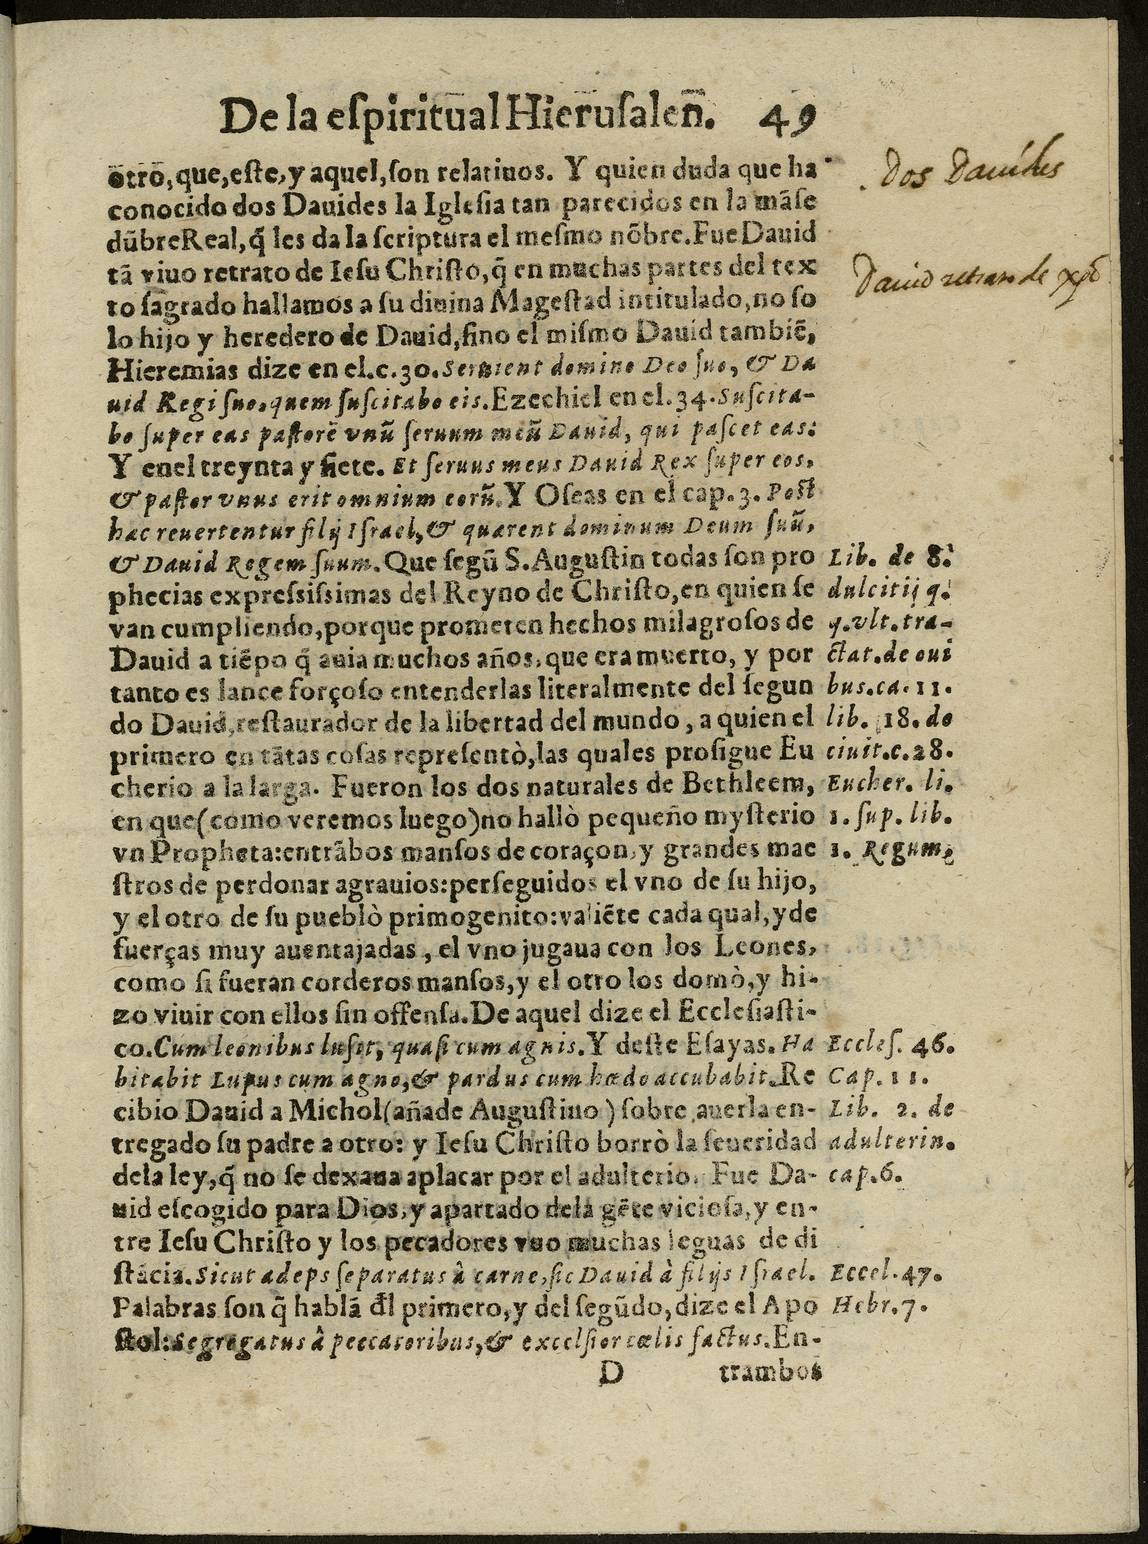 De la eſpiritual Hieruſalen. 49
otro, que, eſte, y aquel, ſon relatiuos. Y quien duda que ha
conocido dos Dauides la Igleſia tan parecidos en la māſe
dūbre Real, q̃ les da la ſcriptura el meſmo nōbre. Fue Dauid
tā viuo retrato de Ieſu Chriſto, q̃ en muchas partes del tex
to ſagrado hallamos a ſu diuina Mageſtad intitulado, no ſo
lo hijo y heredero de Dauid, ſino el miſmo Dauid tambiē,
Hieremias dize en el. c. 30. Seruient domino Deo ſuo, & Da
uid Regi ſuo, quem ſuſcitabo eis. Ezechiel en el. 34. Suſcita-
bo ſuper eas paſtorē vnū ſeruum meū Dauid, qui paſcet eas:
Y enel treynta y ſiete. Et ſeruus meus Dauid Rex ſuper eos,
& paſtor vnus erit omnium eorū. Y Oſeas en el cap. 3. Poſt
hac reuertentur filij Iſrael, & quærent dominum Deum ſuū,
& Dauid Regem ſuum. Que ſegū S. Auguſtin todas ſon pro
phecias expreſsiſsimas del Reyno de Chriſto, en quien ſe
van cumpliendo, porque prometen hechos milagroſos de
Dauid a tiēpo q̃ auia muchos años, que era muerto, y por
tanto es lance forçoſo entenderlas literalmente del ſegun
do Dauid, reſtaurador de la libertad del mundo, a quien el
primero en tātas coſas repreſentò, las quales proſigue Eu
cherio a la larga. Fueron los dos naturales de Bethleem,
en que (como veremos luego) no hallò pequeño myſterio
vn Propheta: entrābos manſos de coraçon, y grandes mae
ſtros de perdonar agrauios: perſeguidos el vno de ſu hijo,
y el otro de ſu pueblò primogenito: valiēte cada qual, y de
fuerças muy auentajadas, el vno jugaua con los Leones,
como ſi fueran corderos manſos, y el otro los domò, y hi-
zo viuir con ellos ſin offenſa. De aquel dize el Eccleſiaſti-
co. Cum leonibus luſit, quaſi cum agnis. Y deſte Eſayas. Ha
bitabit Lupus cum agno, & pardus cum hœdo accubabit. Re
cibio Dauid a Michol (añade Auguſtino) ſobre auerla en-
tregado ſu padre a otro: y Ieſu Chriſto borrò la ſeueridad
dela ley, q̃ no ſe dexaua aplacar por el adulterio. Fue Da-
uid eſcogido para Dios, y apartado dela gēte vicioſa, y en-
tre Ieſu Chriſto y los pecadores vuo muchas leguas de di
ſtācia. Sicut adeps ſeparatus à carne, ſic Dauid à filijs Iſrael.
Palabras ſon q̃ hablā đl primero, y del ſegūdo, dize el Apo
ſtol: Segregatus à peccatoribus, & excelſior cœlis factus. En-
D trambos
Dos Dauides
Dauid retrato de Xpō
Lib. de 8.
dulcitij q.
q. vlt. tra-
ctat. de oui
bus. ca. 11.
lib. 18. de
ciuit. c. 28.
Eucher. li.
1. ſup. lib.
1. Regum,
Eccleſ. 46.
Cap. 11.
Lib. 2. de
adulterin.
cap. 6.
Eccel. 47.
Hebr. 7.